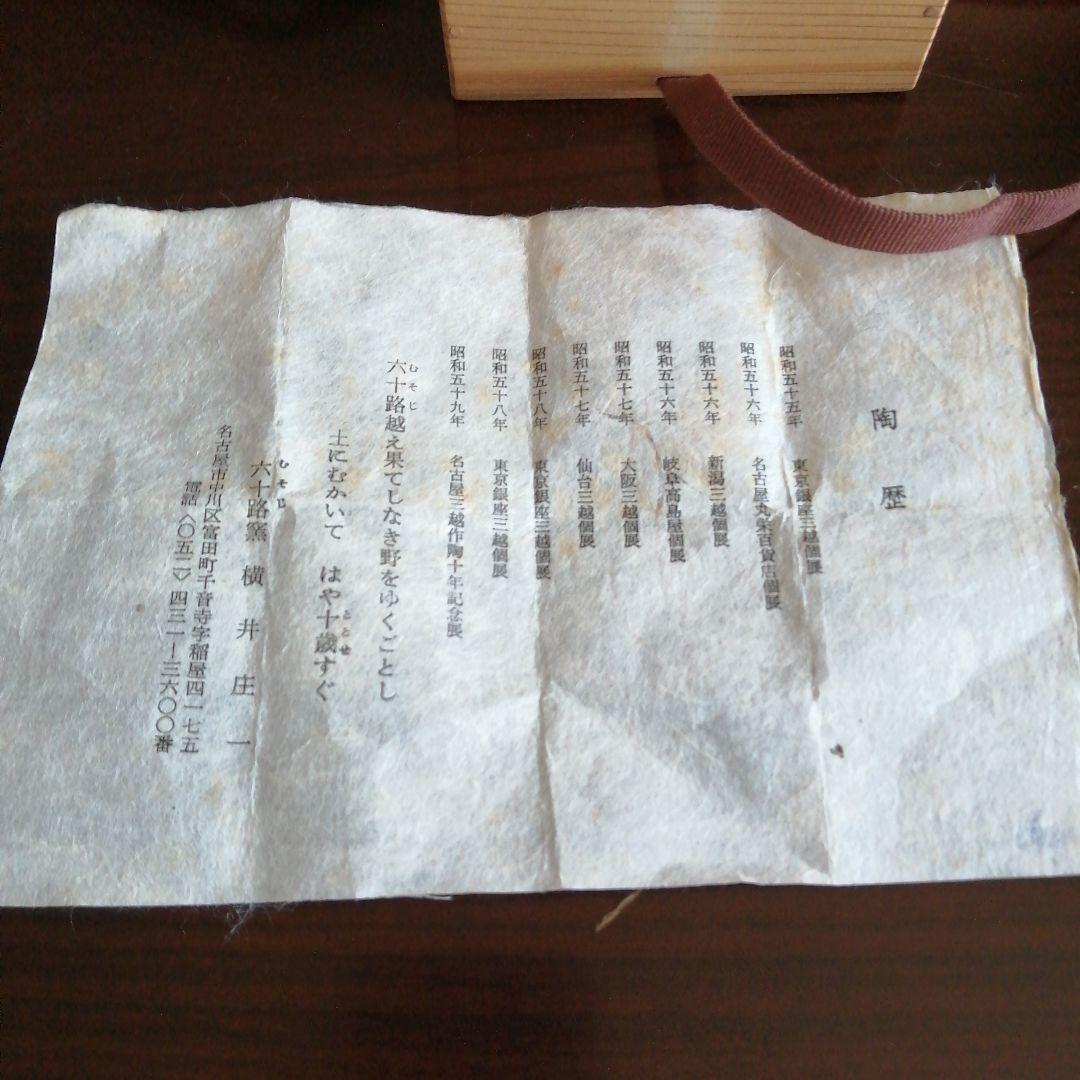 陶歴
昭和五十五年 東京銀座三越個展
昭和五十六年 名古屋丸栄百貨店個展
昭和五十六年 新潟三越個展
昭和五十六年 岐阜高島屋個展
昭和五十七年 大阪三越個展
昭和五十七年 仙台三越個展
昭和五十八年 東京銀座三越個展
昭和五十八年 東京銀座三越個展
昭和五十九年 名古屋三越作陶十年記念展
六十路越え果てしなき野をゆくごとし
むそじ
土にむかいて はや十歳すぐ
ととせ
六十路窯 横井庄一
むそじ
名古屋市中川区富田町千音寺字稲屋四一七五
電話〈〇五二〉四三一―三六〇〇番